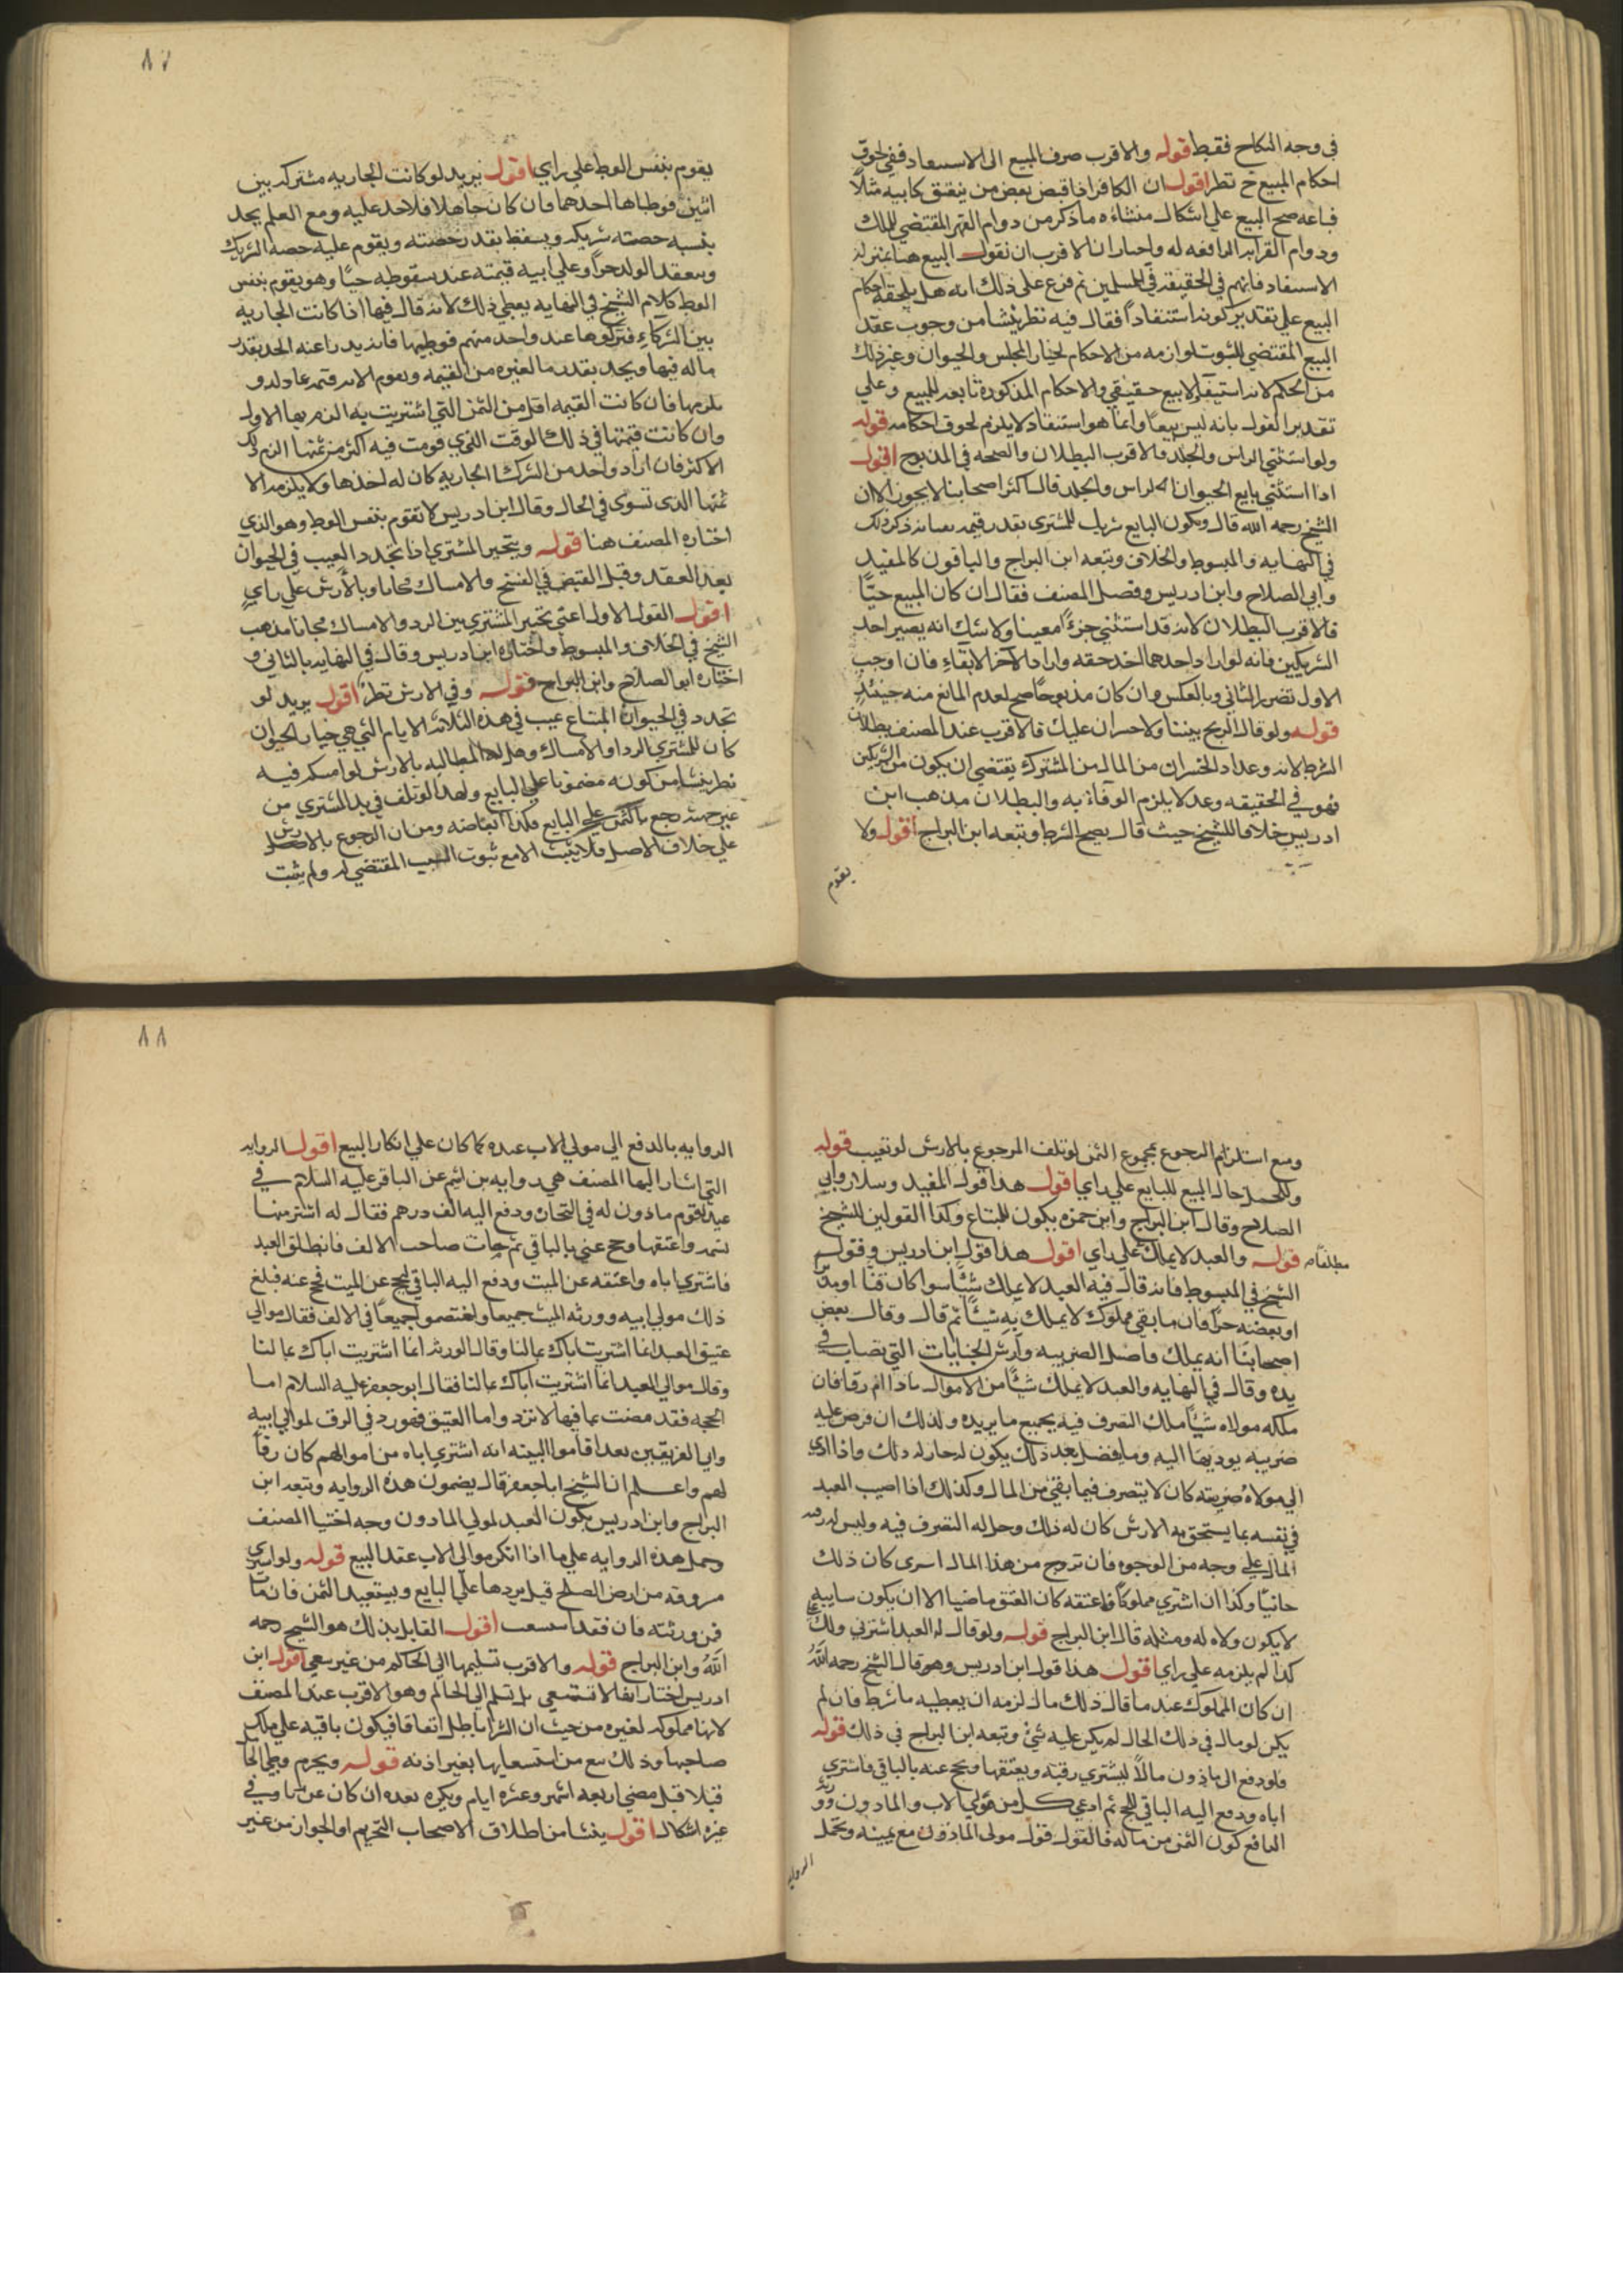 في وجه النكاح فقط قوله والاقرب صرف البيع الى الاستنقاذ ففي لحوق
احكام البيع ح نظر اقول ان الكافر اذا قبض بعض من ينعتق كابيه مثلاً
فباعه صح البيع على اشكال منشاؤه ما ذكر من دوام القهر المقتضي للملك
ودوام القرابه الرافعه له واختار ان الاقرب ان نقول البيع هنا بمنزله
الاستنقاذ فانهم في الحقيقه في للمسلمين ثم فرع على ذلك انه هل يلحقه احكام
البيع على تقدير كونه استنقاذاً فقال فيه نظر ينشا من وجوب عقد
البيع المقتضي لثبوت لوازمه من الاحكام لخيار المجلس والحيوان وغير ذلك
من الحكم لانه استنقاذ لا بيع حقيقي والاحكام المذكورة تابعه للبيع وعلى
تقدير القول بانه ليس بيعاً وانما هو استنقاذ لا يلزم لحوق احكامه قوله
ولو استثني الراس والجلد فالاقرب البطلان والصحه في المذبوح اقول
اذا استثني بايع الحيوان الراس والجلد قال اكثر اصحابنا لا يجوز الا ان
الشيخ رحمه الله قال ويكون البايع شريك للمشتري بقدر قيمه ذكر ذلك
في النهايه والمبسوط والخلاف وتبعه ابن البراج والباقون كالمفيد
وابي الصلاح وابن ادريس وفصل المصنف فقال ان كان المبيع حيّاً
فالاقرب البطلان لانه قد استثني جزءاً معينا ولا شك انه يصير احد
الشريكين فانه لو اراد احدهما اخذ حقه واراد الآخر الابقاء فان اوجب
الاول تضرر الثاني وبالعكس وان كان مذبوحاً صح لعدم المانع منه حينئذٍ
قوله ولو قال الربح بيننا ولا خسران عليك فالاقرب عند المصنف بطلان
الشرط لانه وعد اذ الخسران من المال من المشترك يقتضي ان يكون من الشريكين
فهو في الحقيقه وعد لا يلزم الوفاء به والبطلان مذهب ابن
ادريس خلافا للشيخ حيث قال يصح الشرط وتبعه ابن البراج اقول ولا
يقوم
٨٧
يقوم بنفس الوطئ على راي اقول يريد لو كانت الجاريه مشتركه بين
اثنين فوطياها احدهما فان كان جاهلا فلا حد عليه ومع العلم يحد
بنسبه حصته شريكه ويسقط بقدر حصته ويقوم عليه حصه الشريك
وينعقد الولد حراً وعلى ابيه قيمته عند سقوطه حيّاً وهو يقوم بنفس
الوطئ كلام الشيخ في النهايه يعطي ذلك لانه قال فيها اذا كانت الجاريه
بين الشركاء فتركوها عند واحد منهم فوطيها فانه يدرا عنه الحد بقدر
ما له فيها ويحد بقدر ما لغيره من القيمه وتقوم الامه قيمه عادله و
يلزمها فان كانت القيمه اقل من الثمن التي اشتريت به الزم بها الاول
وان كانت قيمتها في ذلك الوقت الذي قومت فيه اكثر من ثمنها الزم ذلك
الاكثر فان اراد واحد من الشركاء الجاريه كان له اخذها ولا يلزمه الا
ثمنها الذي تسوى في الحال وقال ابن ادريس لا تقوم بنفس الوطئ وهو الذي
اختاره المصنف هنا قوله ويتخير المشتري اذا تجدد العيب في الحيوان
بعد العقد وقبل القبض في الفسخ والامساك مجانا وبالارش على رايٍ
اقول القول الاول اعني تخيير المشتري بين الرد والامساك مجانا مذهب
الشيخ في الخلاف والمبسوط واختاره ابن ادريس وقال في النهايه بالثاني و
اختاره ابو الصلاح وابن البراج قوله وفي الارش نظر اقول يريد لو
تجدد في الحيوان المبتاع عيب في هذه الثلاثه الايام التي هي خيار الحيوان
كان للمشتري الرد او الامساك وهل له المطالبه بالارش لو امسكه فيه
نظر ينشا من كونه مضمونا على البايع ولهذا لو تلف في يد المشتري من
غير جهته رجع بالثمن على البايع فكذا ابعاضه ومن ان الرجوع بالارش
على خلاف الاصل فلا يثبت الا مع ثبوت السبب المقتضي له ولم يثبت
ومع استلزام الرجوع بمجموع الثمن لو تلف المرجوع بالارش لو تعيب قوله
والحمل حال البيع للبايع على راي اقول هذا قول المفيد وسلار وابي
الصلاح وقال ابن البراج وابن حمزه يكون للمبتاع وكذا القولين للشيخ
قوله والعبد لا يملك مطلقاً على راي اقول هذا قول ابن ادريس وقول
الشيخ في المبسوط فانه قال فيه العبد لا يملك شيئاً سوا كان قنّا او مدبّر
او بعضه حراً فان ما بقي مملوك لا يملك به شيئاً ثم قال وقال بعض
اصحابنا انه يملك فاضل الضريبه وارش الجنايات التي تصاب في
يده وقال في النهايه والعبد لا يملك شيئاً من الاموال ما دام رقا فان
ملكه مولاه شيئاً ملك التصرف فيه بجميع ما يريده ولذلك ان فرض عليه
ضريبه يوديها اليه وما يفضل بعد ذلك يكون له جاز له ذلك واذا ادى
الى مولاه ضريبته كان لا يتصرف فيما بقي من المال وكذلك اذا اصيب العبد
في نفسه بما يستحق به الارش كان له ذلك وحل له التصرف فيه وليس له رقبه
المال على وجه من الوجوه فان تزوج من هذا المال اسرى كان ذلك
جائزاً وكذا ان اشترى مملوكاً فاعتقه كان العتق ماضيا الا ان يكون سايبه
لا يكون ولاه له ومثله قال ابن البراج قوله ولو قال له العبد اشترني ولك علي
كذا لم يلزمه على راي اقول هذا قول ابن ادريس وهو قال الشيخ رحمه الله
ان كان المملوك عند ما قال ذلك مال لزمه ان يعطيه ما شرط فان لم
يكن له مال في ذلك الحال لم يكن عليه شئ وتبعه ابن البراج في ذلك قوله
فلو دفع الى ماذون مالاً ليشتري رقبه ويعتقها ويحج عنه بالباقي فاشترى
اباه ودفع اليه الباقي للحج ثم ادعى كل من مولى الاب والماذون وورثه
الدافع كون الثمن من ماله فالقول قول مولى الماذون مع يمينه ويحمل
الروايه
٨٨
الروايه بالدفع الى مولى الاب عبده كما كان على انكار البيع اقول الروايه
التي اشار اليها المصنف هي روايه بن اشيم عن الباقر عليه السلام في
عبد لقوم ماذون له في التجاره ودفع اليه الف درهم فقال له اشتر منها
نسمه واعتقها وحج عني بالباقي ثم مات صاحب الالف فانطلق العبد
فاشترى اباه واعتقه عن الميت ودفع اليه الباقي ليحج عن الميت فحج عنه فبلغ
ذلك مولى ابيه وورثه الميت جميعا واختصموا جميعاً في الالف فقال موالي
عتيق العبد انما اشتريت اباك بمالنا وقال الورثه انما اشتريت اباك بمالنا
وقال موالي العبد انما اشتريت اباك بمالنا فقال ابو جعفر عليه السلام اما
الحجه فقد مضت بما فيها لا ترد واما العتيق فهو رد في الرق لموالي ابيه
واي الفريقين بعد اقاموا البينه انه اشترى اباه من اموالهم كان رقاً
لهم واعلم ان الشيخ ابا جعفر قال بمضمون هذه الروايه وتبعه ابن
البراج وابن ادريس يكون العبد لمولى الماذون وجه اختيار المصنف
وحمل هذه الروايه على ما اذا انكر موالي الاب عقد البيع قوله ولو اشترى
مسروقه من ارض الصلح قيل يردها على البايع ويستعيد الثمن فان مات
فمن ورثته فان فقد استسعت اقول القايل بذلك هو الشيخ رحمه
الله وابن البراج قوله والاقرب تسليمها الى الحاكم من غير سعي اقول ابن
ادريس اختار انها لا تستسعى بل تسلم الى الحاكم وهو الاقرب عند المصنف
لانها مملوكه لغيره من حيث ان الشرا باطل اتفاقا فيكون باقيه على ملك
صاحبها وذلك منع من استسعايها بغير اذنه قوله ويحرم وطئ الحامل
قبلا قبل مضي اربعه اشهر وعشره ايام ويكره بعده ان كان عن زنا وفي
غيره اشكال اقول ينشا من اطلاق الاصحاب التحريم او الجواز من غير